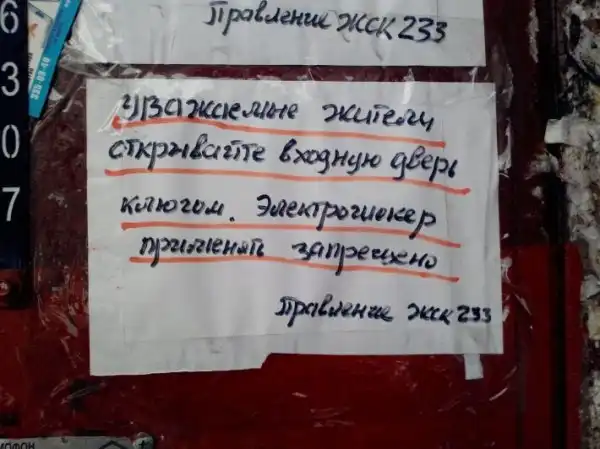 Правление ЖСК 233
6
3
0
7
Уважаемые жители
открывайте входную дверь
ключом. Электрошокер
применять запрещено
Правление ЖСК 233